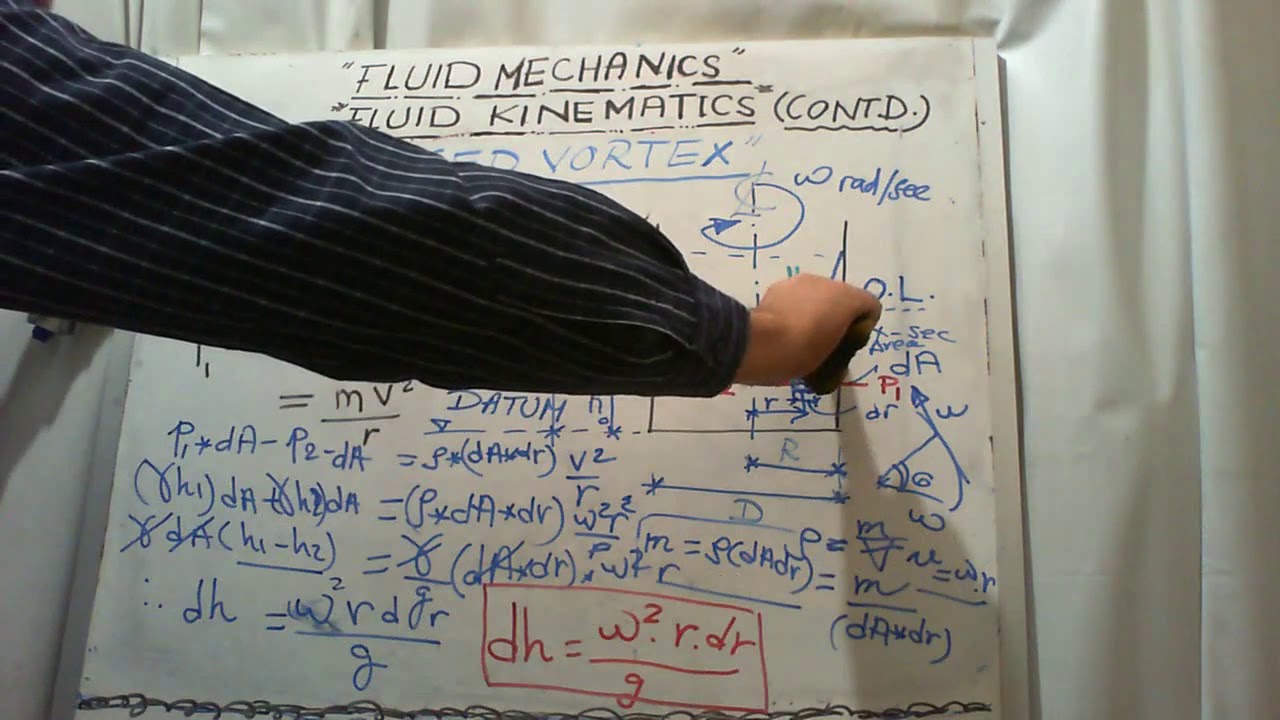 "FLUID MECHANICS"
"FLUID KINEMATICS" (CONTD.)
VORTEX"
ω rad/sec
O.L.
x-sec
Area
dA
P₁
dr
r
R
D
ω
θ
ω
= mv²/r
DATUM
P₁*dA - P₂-dA = ρ*(dA*dr) v²/r
(γh₁)dA-(γh₂)dA = (ρ*dA*dr) ω²r²/r
γdA(h₁-h₂) = γ/g (dA*dr).ω² r
m = ρ(dAdr)
ρ = m/V = m/(dA*dr)
v = ω.r
∴ dh = ω² r dr/g
dh = ω². r.dr/g